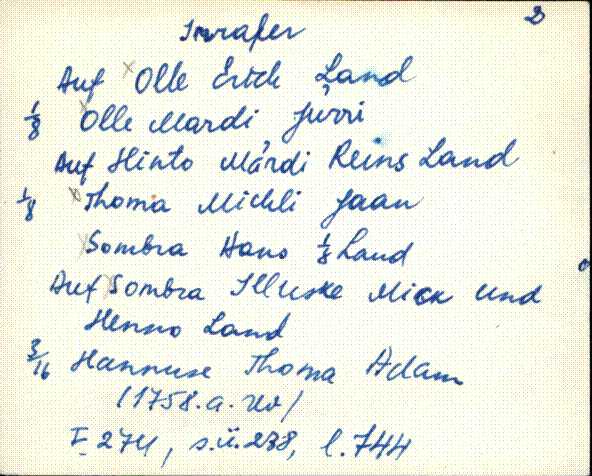 2
Imrafer
Auf Olle Erich Land
1/8 Olle Mardi Jurri
Auf Hinto Märdi Reins Land
1/8 Thoma Michli Jaan
Sombra Hans 1/8 Land
Auf Sombra Illuske Mick und
Henno Land
3/16 Hannuse Thoma Adam
(1758.a. Uv/
I 274, s.ü.238, l.744